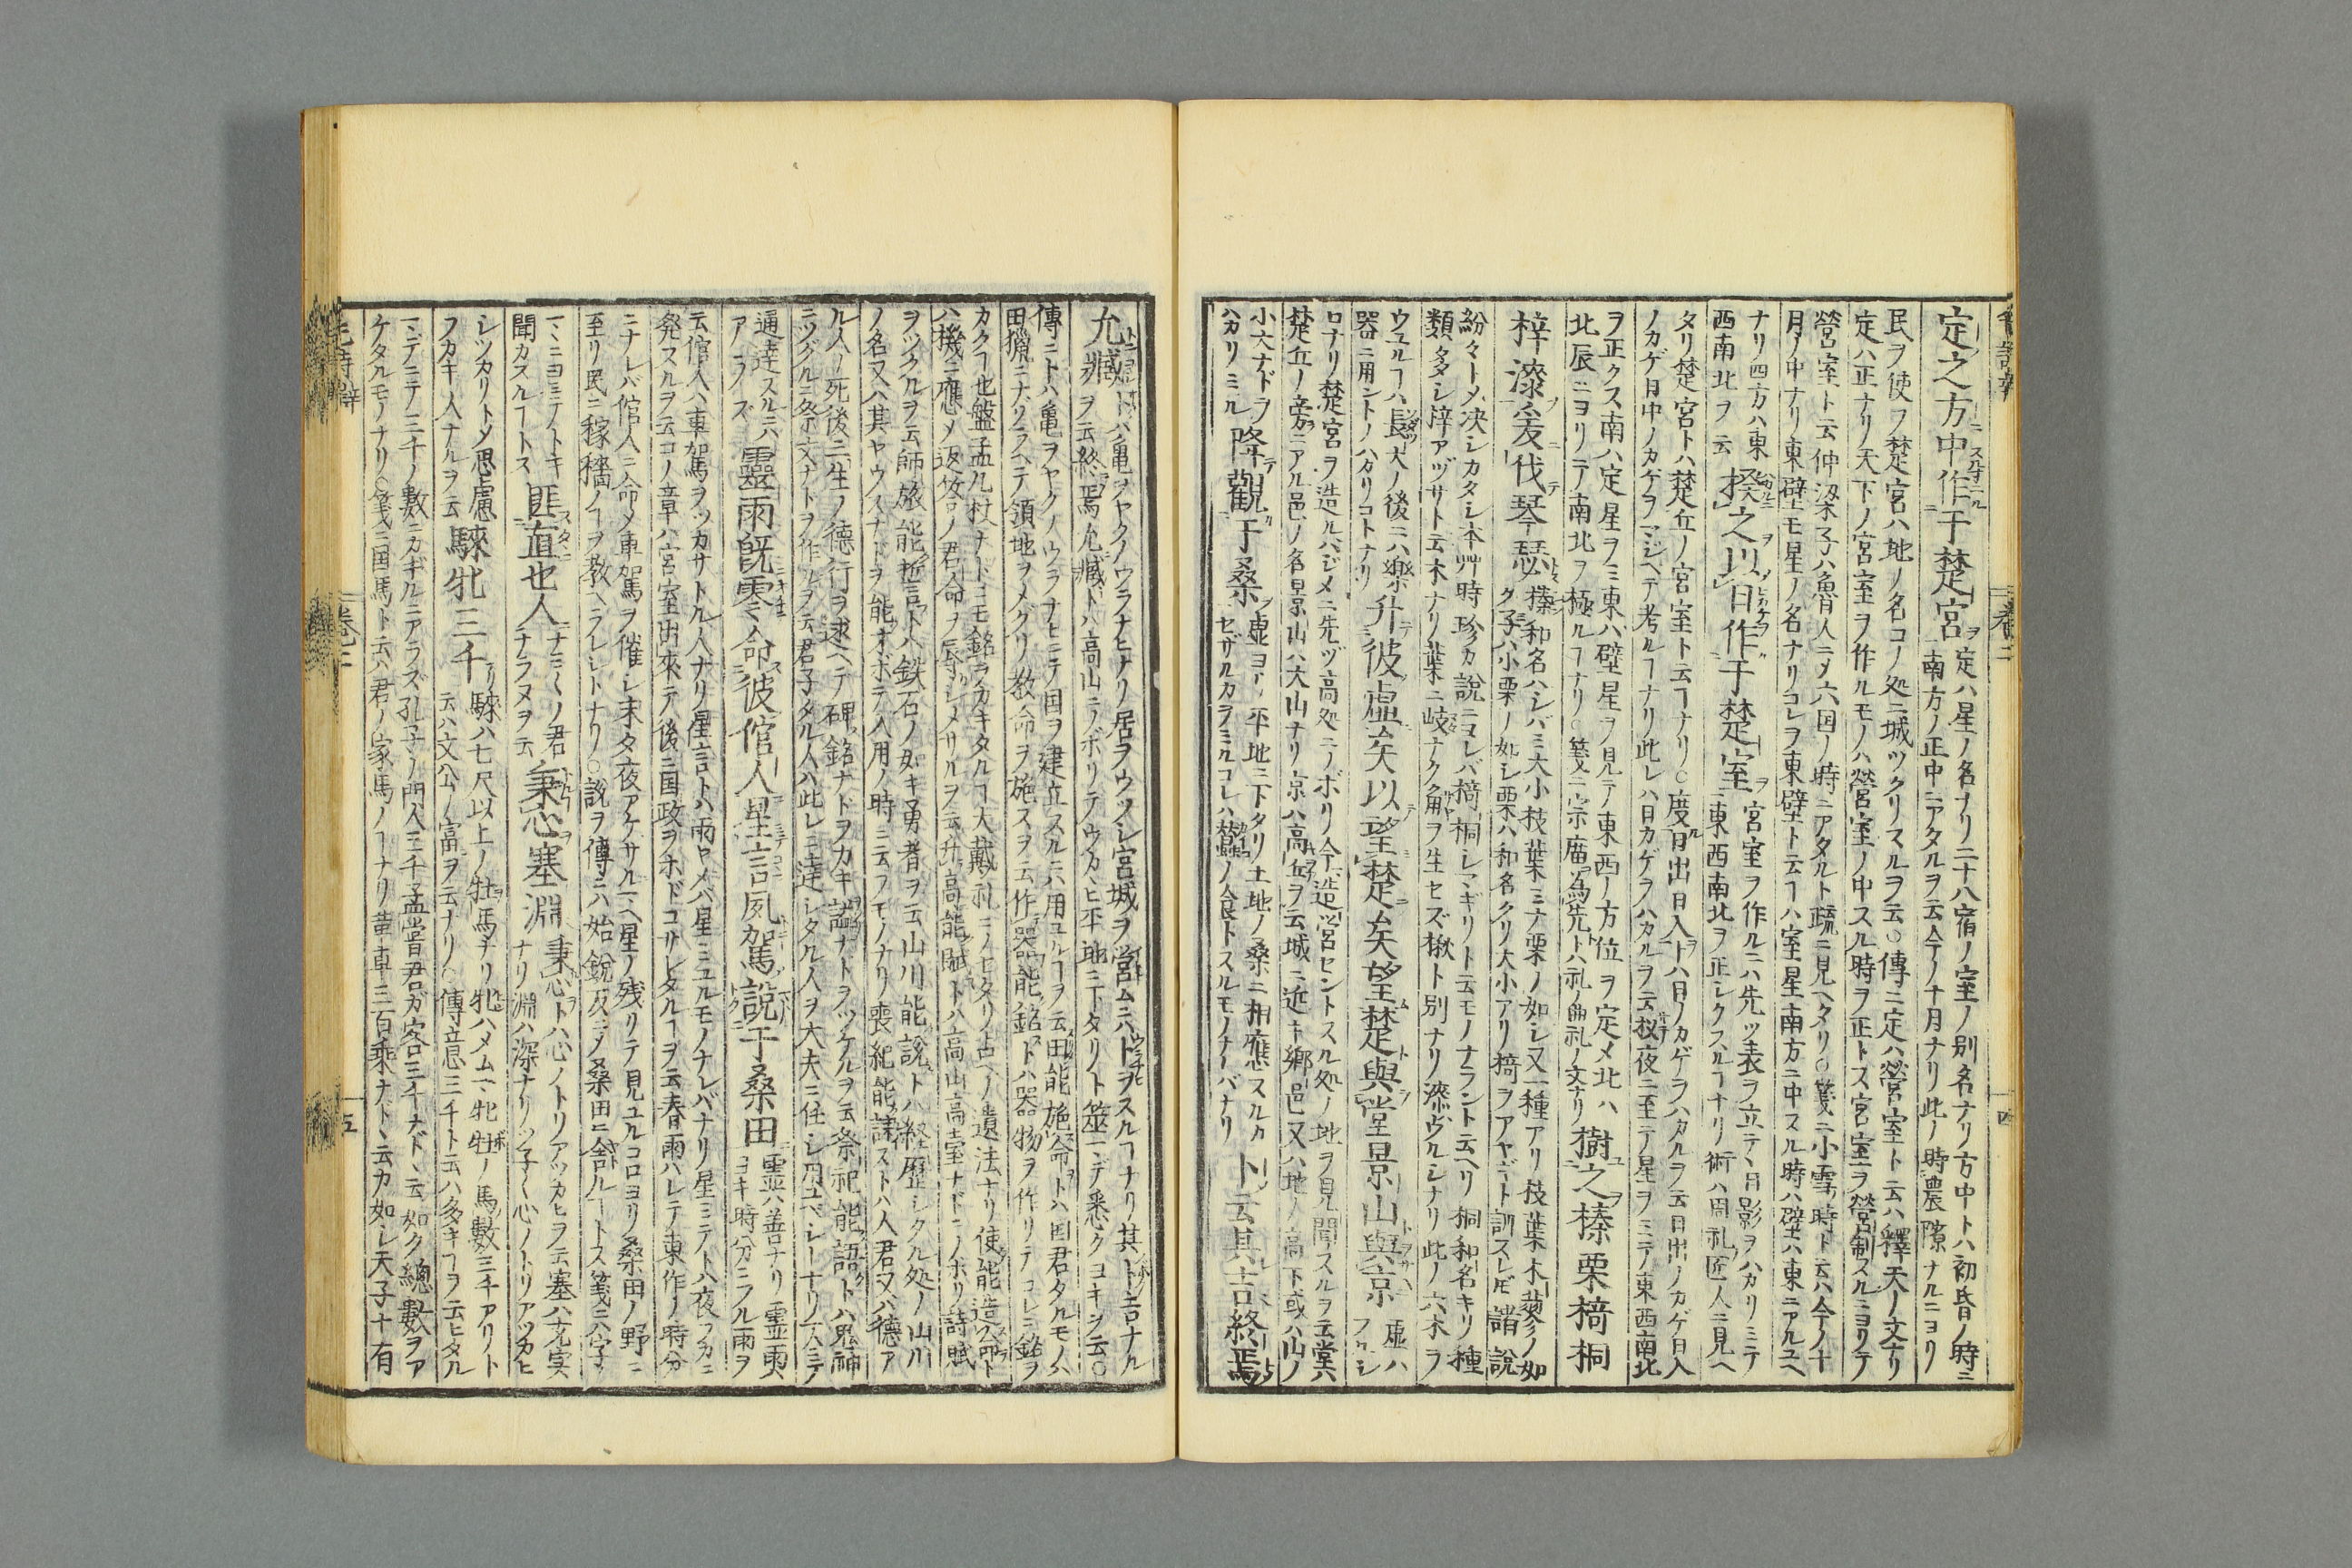 定之方中作于楚宮 定ハ星ノ名ナリ二十八宿ノ室ノ別名ナリ方中トハ初昏ノ時ニ
南方ノ正中ニアタルヲ云今ノ十月ナリ此ノ時農隙ナルニヨリ
民ヲ使フ楚宮ハ地ノ名コノ処ニ城ツクリスルヲ云○傳ニ定ハ營室ト云ハ釋天ノ文ナリ
定ハ正ナリ天下ノ宮室ヲ作ルモノハ營室ノ中スル時ヲ正トス宮室ヲ營制スルニヨリテ
營室ト云仲梁子ハ魯人ニメ六国ノ時ニアタルト疏ニ見ヘタリ○箋ニ小雪時ト云ハ今ノ十
月ノ中ナリ東壁モ星ノ名ナリコレヲ東壁ト云フハ室星南方ニ中スル時ハ壁ハ東ニアルユヘ
ナリ四方ハ東
西南北ヲ云 揆之以日作于楚室 宮室ヲ作ルニハ先ツ表ヲ立テヽ日影ヲハカリミテ
東西南北ヲ正シクスルヿナリ術ハ周礼匠人ニ見ヘ
タリ楚宮トハ楚丘ノ宮室ト云ヿナリ○度日出日入トハ日ノカゲヲハカルヲ云日出ノカゲ日入
ノカゲ日中ノカゲヲマジヘテ考ルヿナリ此レハ日カゲヲハカルヲ云扨夜ニ至テ星ヲミテ東西南北
ヲ正クス南ハ定星ヲミ東ハ壁星ヲ見テ東西ノ方位ヲ定メ北ハ
北辰ニヨリテ南北ヲ極ルヿナリ○箋ニ宗廟為先トハ礼ノ曲礼ノ文ナリ 樹之榛栗椅桐
梓漆爰伐琴瑟 榛和名ハシバミ大小枝葉ミナ栗ノ如シ又一種アリ枝葉木蓼ノ如
ク子ハ小栗ノ如シ栗ハ和名クリ大小アリ椅ヲアヤギト訓スレ𪜈諸説
紛々トメ决シカタシ本艸時珍カ説ニヨレバ椅桐レマギリト云モノナラント云ヘリ桐和名キリ種
類多シ梓アヅサト云木ナリ葉ニ岐ナク角ヲ生セズ楸ト別ナリ漆ウルシナリ此ノ六木ヲ
ウユルヿハ長大ノ後ニハ樂
器ニ用ントノハカリコトナリ 升彼虛矣以望楚矣望楚與堂景山與京 虛ハフルシ
ロナリ楚宮ヲ造ルハジメニ先ヅ高処ニノボリ今造営セントスル処ノ地ヲ見聞スルヲ云堂ハ
楚丘ノ旁ニアル邑ノ名景山ハ大山ナリ京ハ高丘ヲ云城ニ近キ郷邑又ハ地ノ高下或ハ山ノ
小大ナドヲ
ハカリミル 降觀于桑 虛ヨリ平地ニ下タリ土地ノ桑ニ相應スルカ
セザルカヲミルコレハ蠶ノ食トスルモノナレバナリ 卜云其吉終焉
允臧 卜トハ亀ヲヤクノウラナヒナリ居ヲウツシ宮城ヲ営ムニハトヲスルヿナリ其卜吉ナル
ヲ云終焉允臧トハ高山ニノボリテウカヽヒ平地ニ下タリト筮マデ悉クヨキヲ云○
傳ニトハ亀ヲヤクノウラナヒニテ国ヲ建立スルニハ用ユルヿヲ云田能施命トハ国君タルモノハ
田獵ニナリラヘテ領地ヲメグリ教命ヲ施スヲ云作器能銘トハ器物ヲ作リテコレニ銘ヲ
カクヿ也盤盂几杖ナトニモ銘ヲカキタルヿ大戴礼ニノセタリ古ヘノ遺法ナリ使能造命ト
ハ機ニ應メ返答ノ君命ヲ辱カシメサルヲ云升高能賦トハ高山高臺ナドニノホリ詩賦
ヲツクルヲ云師旅能誓言トハ鉄石ノ如キ勇者ヲ云山川能説トハ経歴シクル処ノ山川
ノ名又ハ其ヤウスナドヲ能オボテ入用ノ時ニ云フモノナリ喪紀能誄ストハ人君又ハ德ア
ル人ノ死後ニ生ノ德行ヲ述ヘテ碑銘ナドヲカキ謚ナトヲツケルヲ云祭祀能語トハ鬼神
ニツグルニ祭文ナトヲ作ルヲ云君子タル人ハ此レニ達シタル人ヲ大夫ニ任シ用ユベシーナリ
通達スルニハ
アラズ 靈雨既零命彼倌人星言夙駕説于桑田 霊ハ善ナリ霊雨
ヨキ時分ニフル雨ヲ
云倌人ハ車駕ヲツカサトル人ナリ星言トハ雨ヤメバ星ミユルモノナレバナリ星ミテトハ夜フカニ
発スルヲ云コノ章ハ宮室出來テ後ニ国政ヲホドコサレタルヿヲ云春雨ハレテ東作ノ時分
ニナレバ倌人ニ命メ車駕ヲ催シ未タ夜アケサルニ星ノ残リテ見ユルコロヨリ桑田ノ野ニ
至リ民ニ稼穡ノヿヲ教ヘラレシトナリ○説ヲ傳ニハ始鋭反ニメ桑田ニ舎ルヿトス箋ニハ字
マヽニヨミテトキ
聞カスルヿトス 匪直也人 ナミ〳〵ノ君
ニナラヌヲ云 秉心塞淵 秉心トハ心ノトリアツカヒヲ云塞ハ充実
ナリ淵ハ深ナリ
シツカリトメ思慮
フカキ人ナルヲ云 騋牝三千 騋ハ七尺以上ノ牡馬ナリ牝ハメムマ牝牡ノ馬數三千アリト
云ハ文公ノ富ヲ云ナリ○傳意三千ト云ハ多キヿヲ云ヒタル
マデニテ三千ノ數ニカギルニアラズ孔子ノ門人三千孟嘗君ガ客三千ナドヽ云如ク總數ヲア
ケタルモノナリ○箋ニ国馬ト云ハ君ノ家馬ノヿナリ革車三百乘ナトヽ云カ如シ天子十有
毛詩辟
卷二
十四
十五